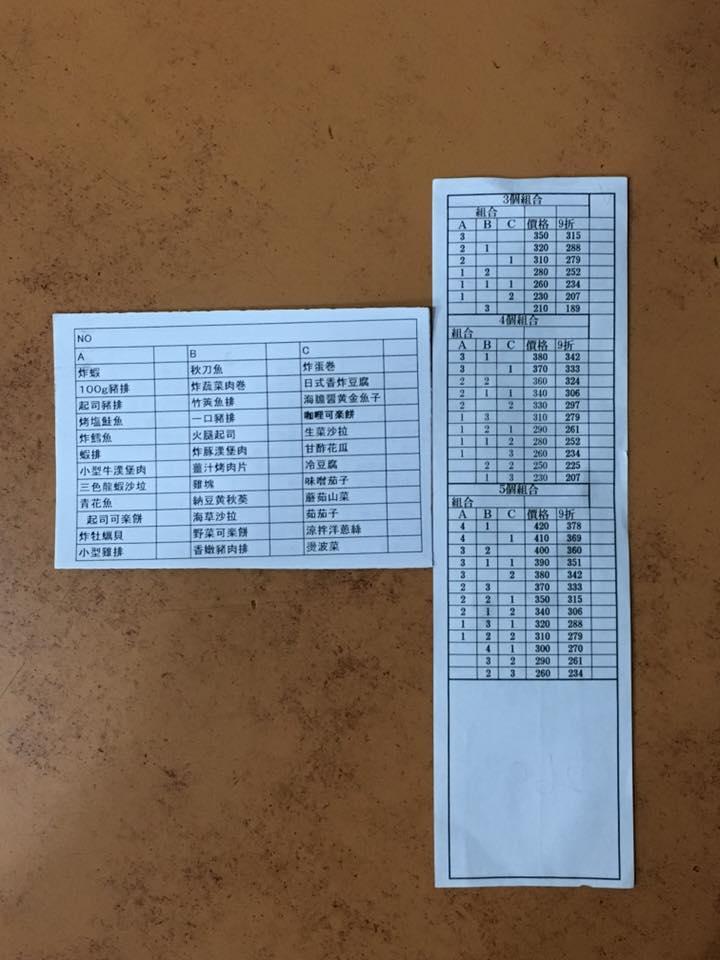 NO
A B C
炸蝦 秋刀魚 炸蛋卷
100g豬排 炸蔬菜肉卷 日式香炸豆腐
起司豬排 竹筴魚排 海膽醬黃金魚子
烤塩鮭魚 一口豬排 咖哩可樂餅
炸鱈魚 火腿起司 生菜沙拉
蝦排 炸豚漢堡肉 甘酢花瓜
小型牛漢堡肉 薑汁烤肉片 冷豆腐
三色龍蝦沙垃 雞塊 味噌茄子
青花魚 納豆黃秋葵 蘑茹山菜
起司可樂餅 海草沙拉 茹茄子
炸牡蠣貝 野菜可樂餅 涼拌洋蔥絲
小型雞排 香嫩豬肉排 燙波菜
3個組合
組合
A B C 價格 9折
3 350 315
2 1 320 288
2 1 310 279
1 2 280 252
1 1 1 260 234
1 2 230 207
3 210 189
4個組合
組合 價格 9折
A B C
3 1 380 342
3 1 370 333
2 2 360 324
2 1 1 340 306
2 2 330 297
1 3 310 279
1 2 1 290 261
1 1 2 280 252
1 3 260 234
2 2 250 225
1 3 230 207
5個組合
組合
A B C 價格 9折
4 1 420 378
4 1 410 369
3 2 400 360
3 1 1 390 351
3 2 380 342
2 3 370 333
2 2 1 350 315
2 1 2 340 306
1 3 1 320 288
1 2 2 310 279
4 1 300 270
3 2 290 261
2 3 260 234